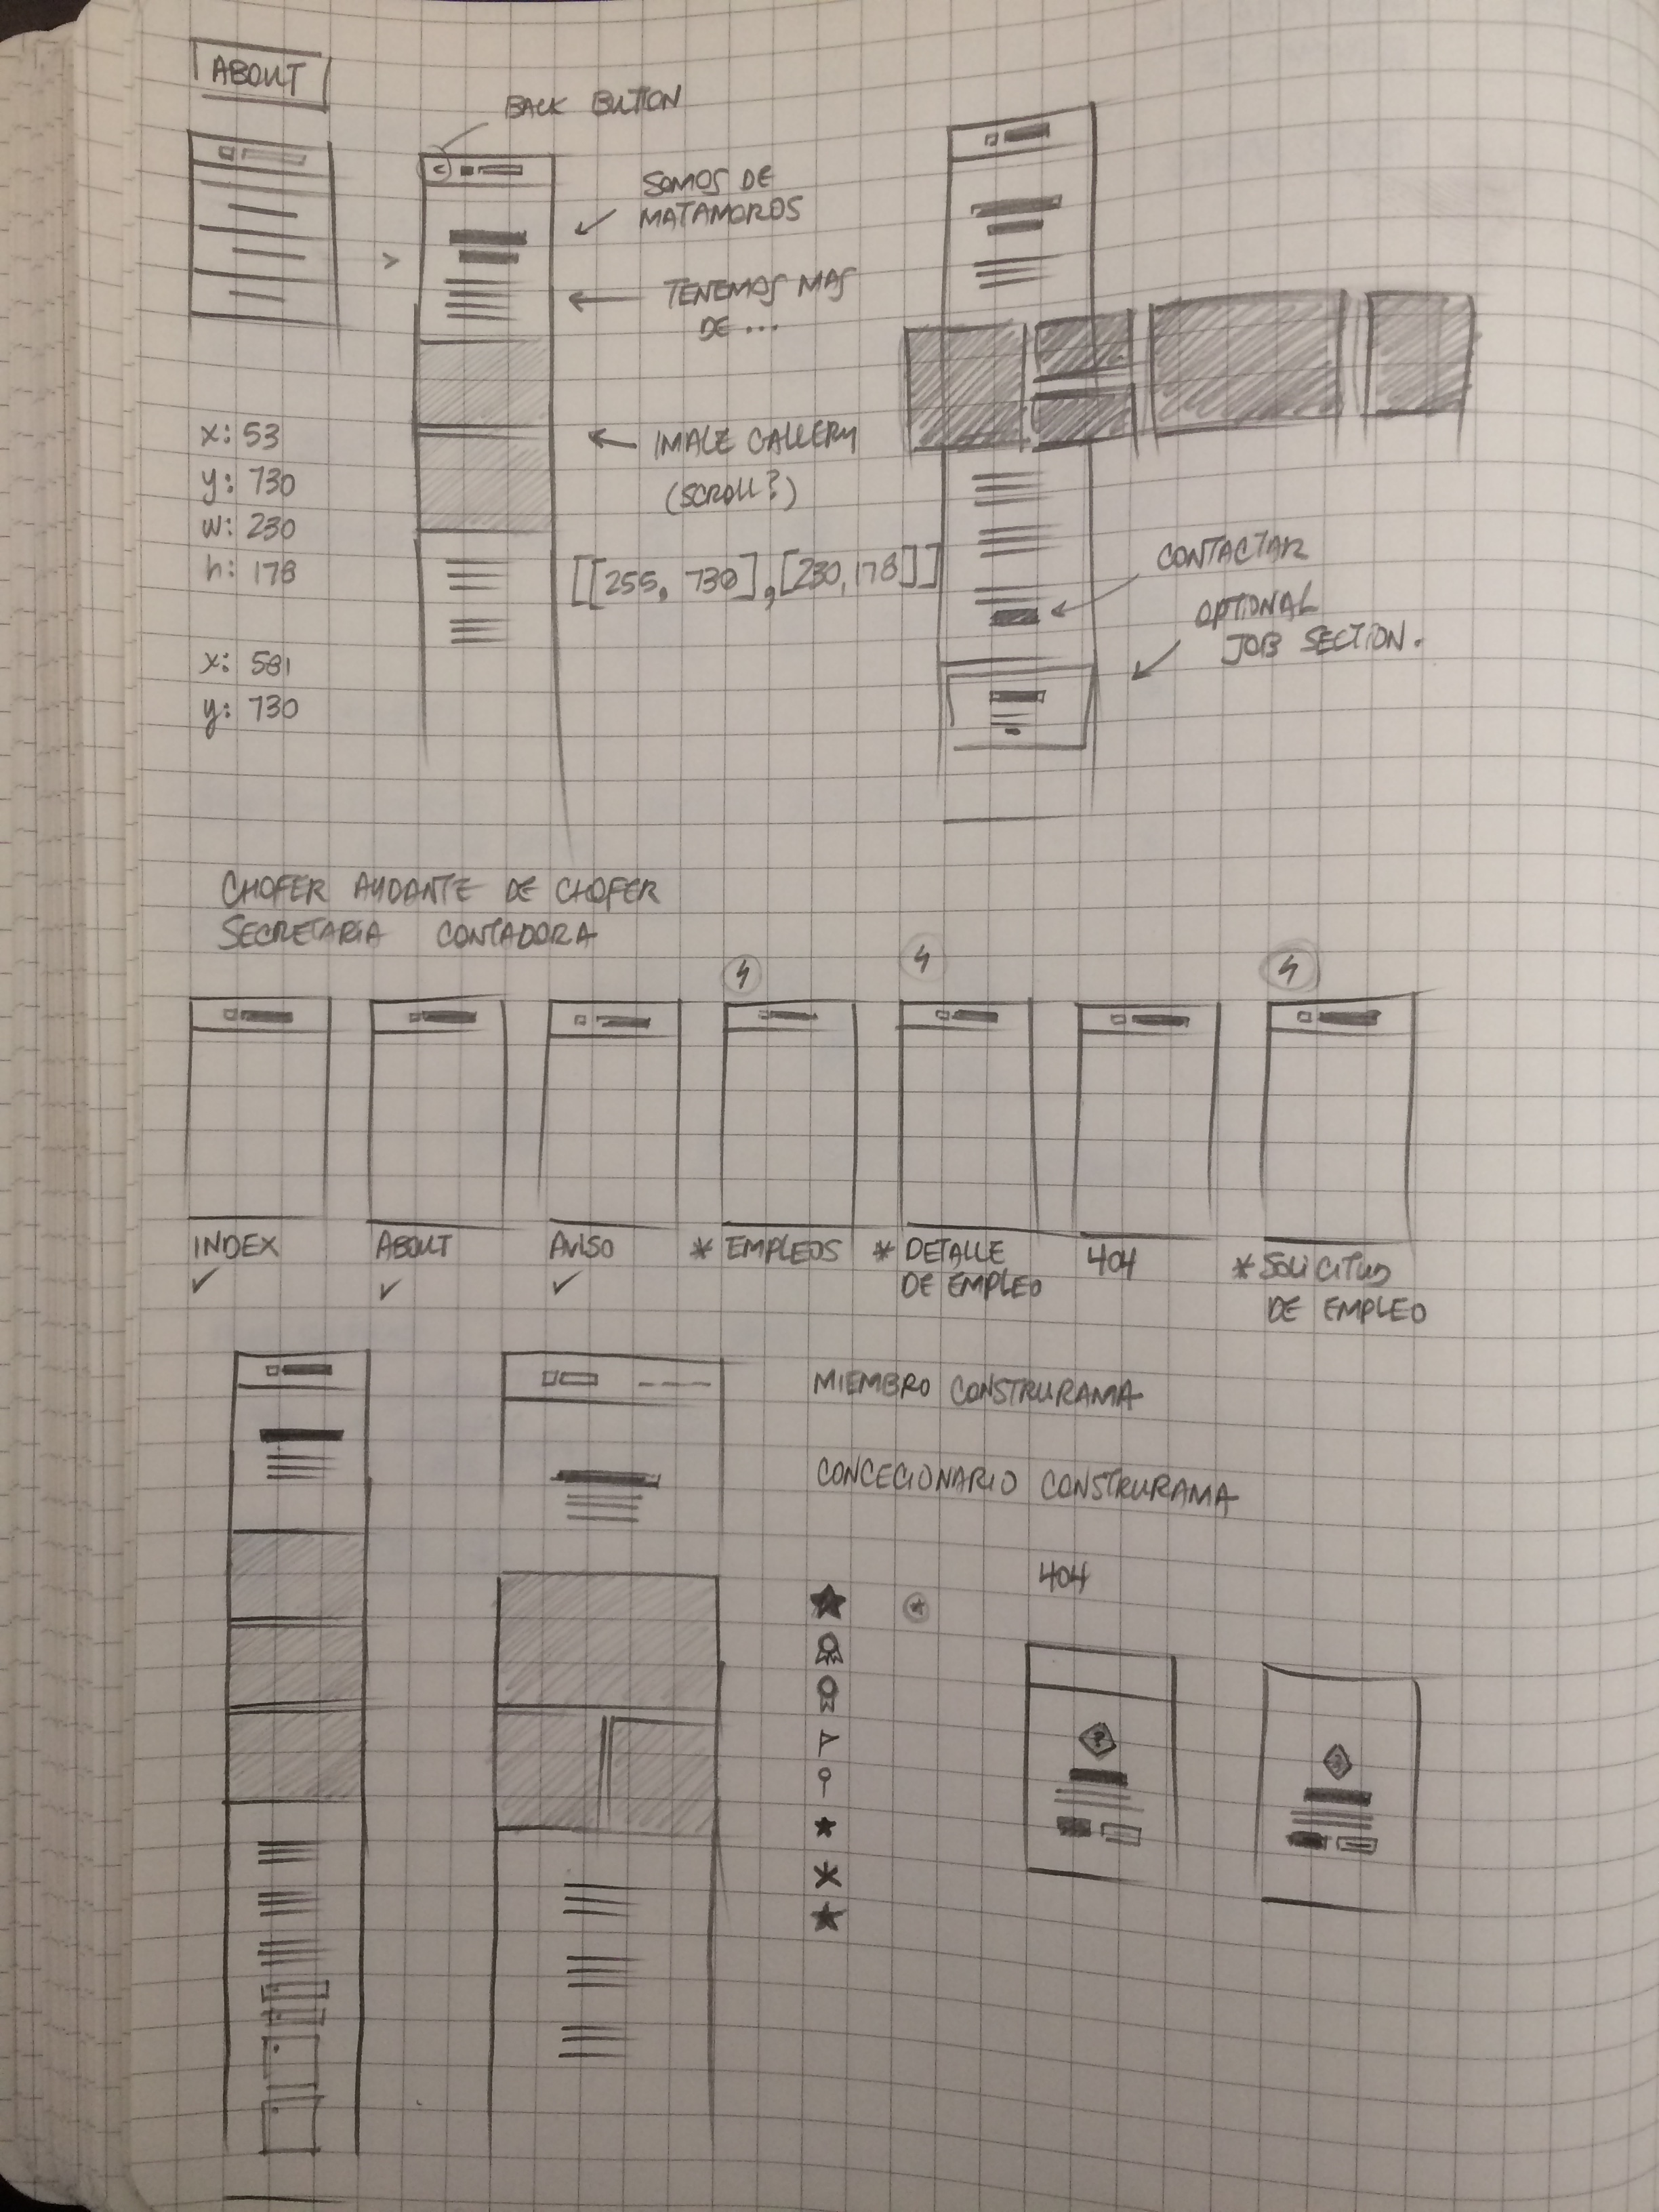 ABOUT
BACK BUTTON
SOMOS DE
MATAMOROS
TENEMOS MAS
DE ...
x: 53
y: 730
w: 230
h: 178
IMAGE GALLERY
(SCROLL?)
[[255, 730],[230,178]]
CONTACTAR
OPTIONAL
JOB SECTION.
x: 581
y: 730
CHOFER AYUDANTE DE CHOFER
SECRETARIA CONTADORA
INDEX ✓
ABOUT ✓
AVISO ✓
* EMPLEOS
* DETALLE
DE EMPLEO
404
* SOLICITUD
DE EMPLEO
MIEMBRO CONSTRURAMA
CONCECIONARIO CONSTRURAMA
404
?